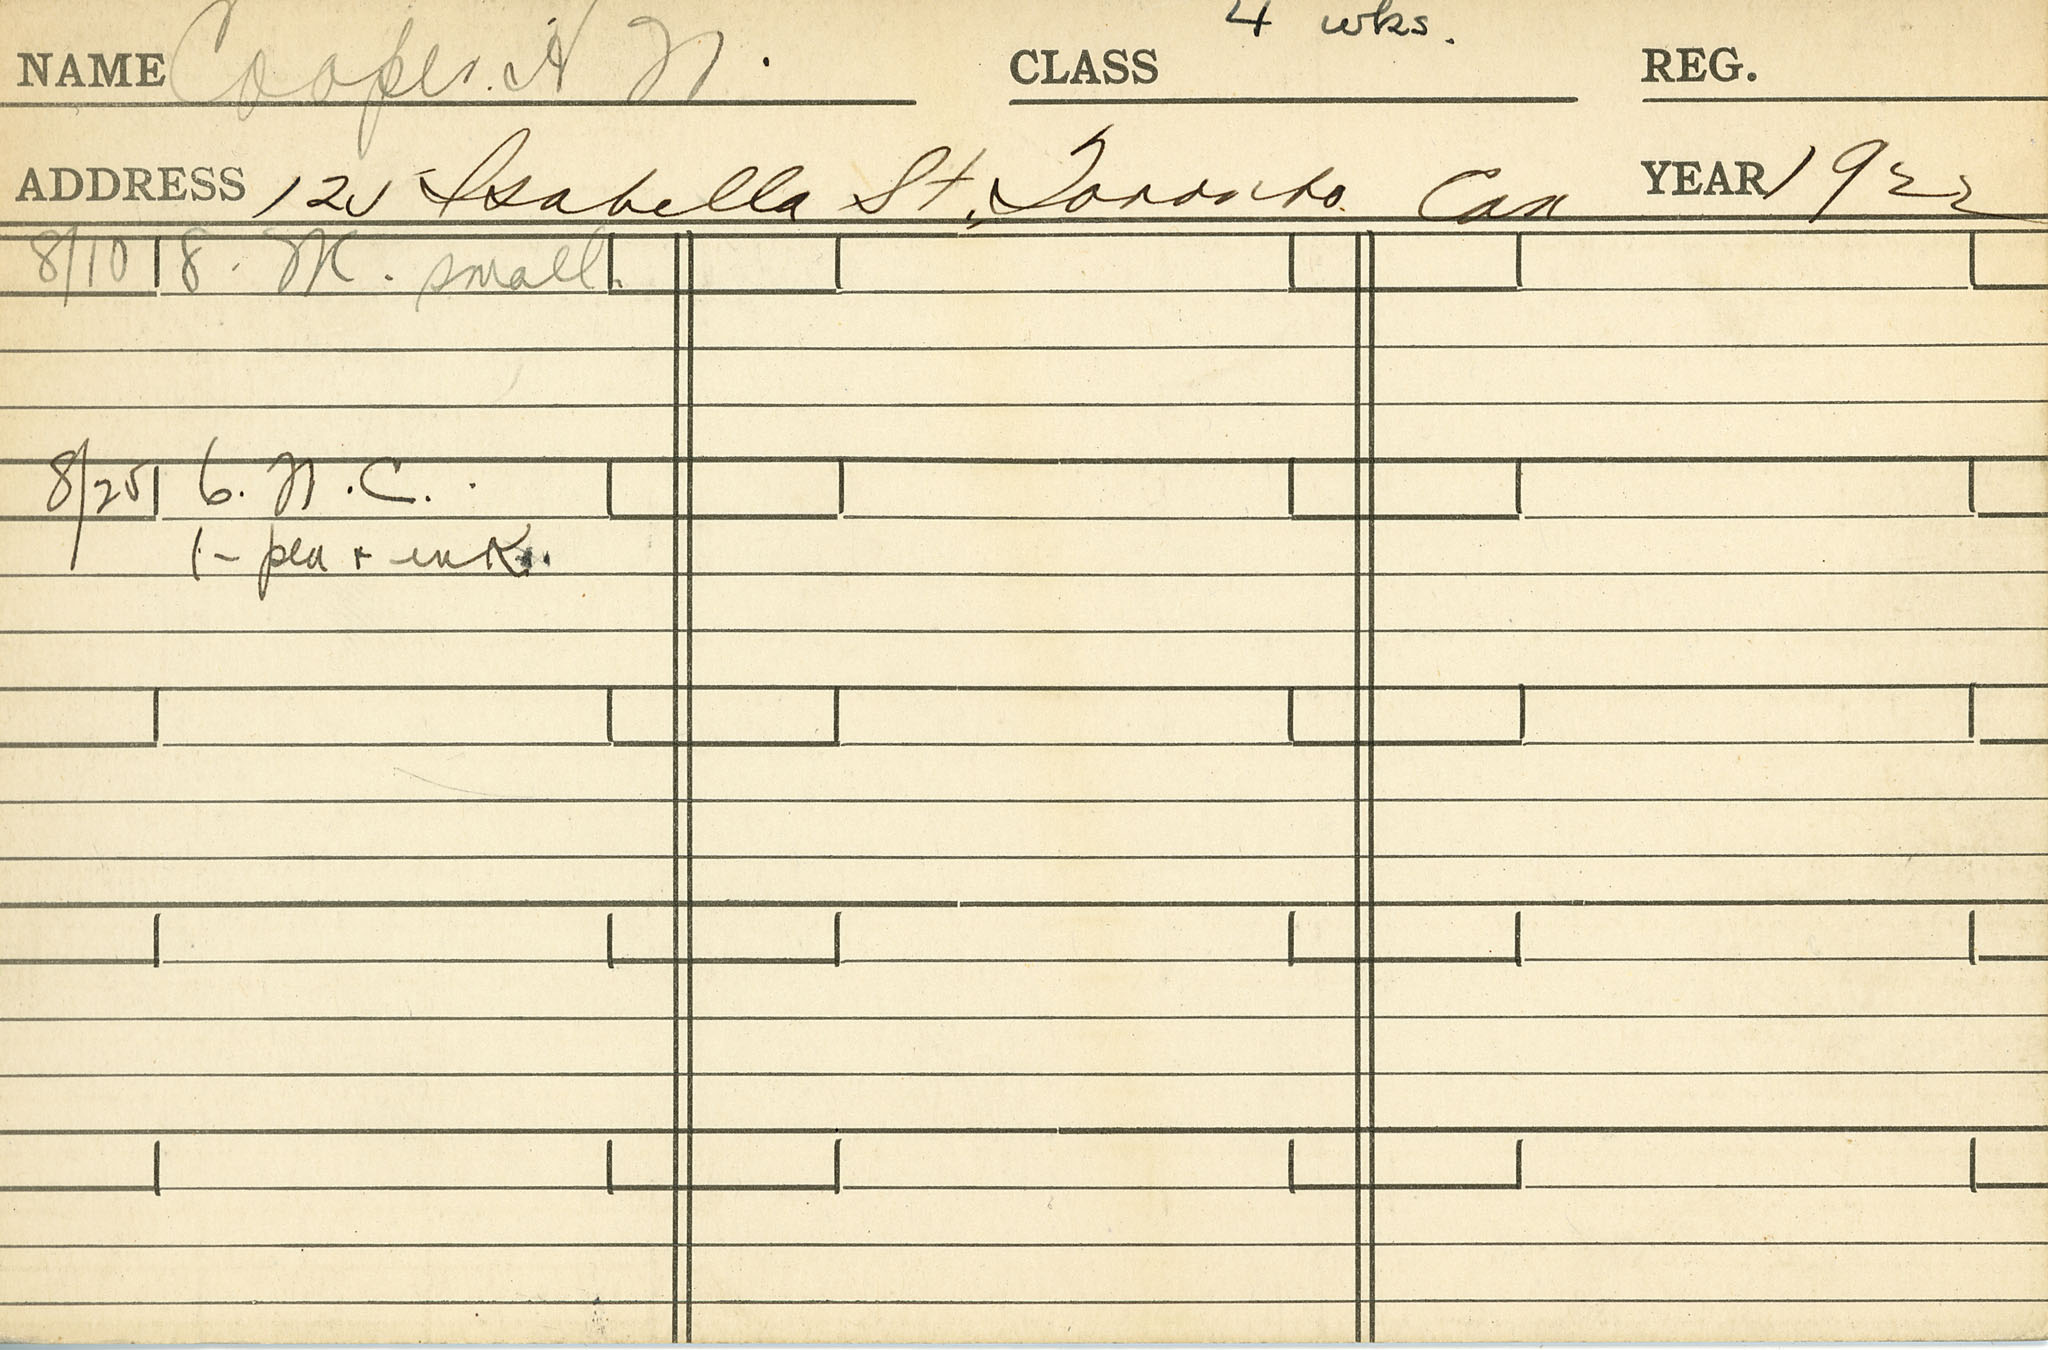 4 wks.
NAME Cooper. A N. CLASS REG.
ADDRESS 125 Isabella St., Toronto. Can YEAR 1922
8/10 8. M. small.
8/25 6. N. C.
1 - pen + ink.